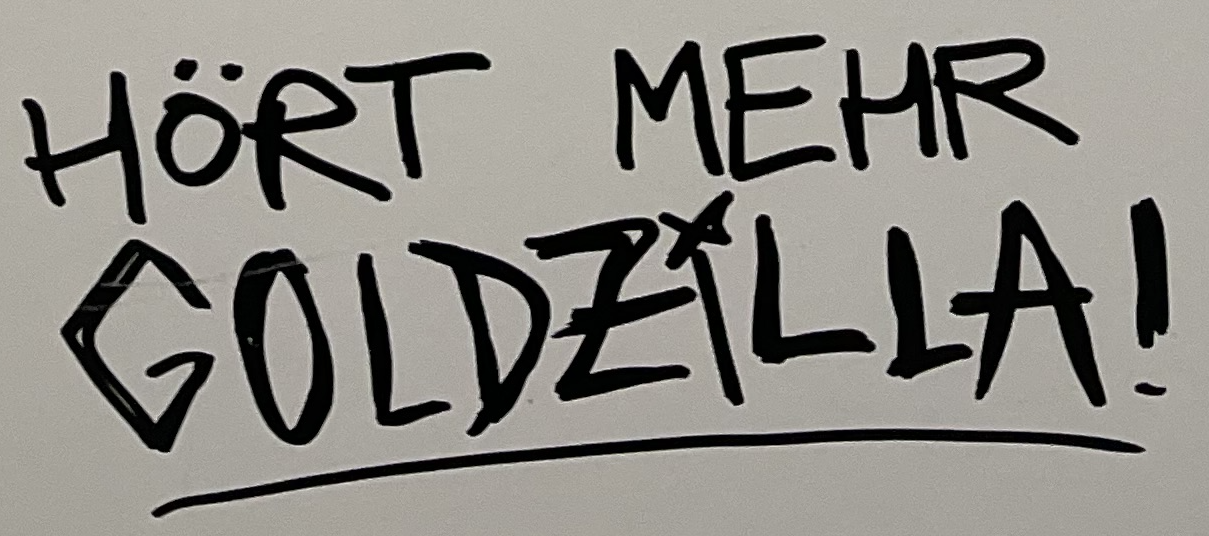 HÖRT MEHR
GOLDZiLLA!